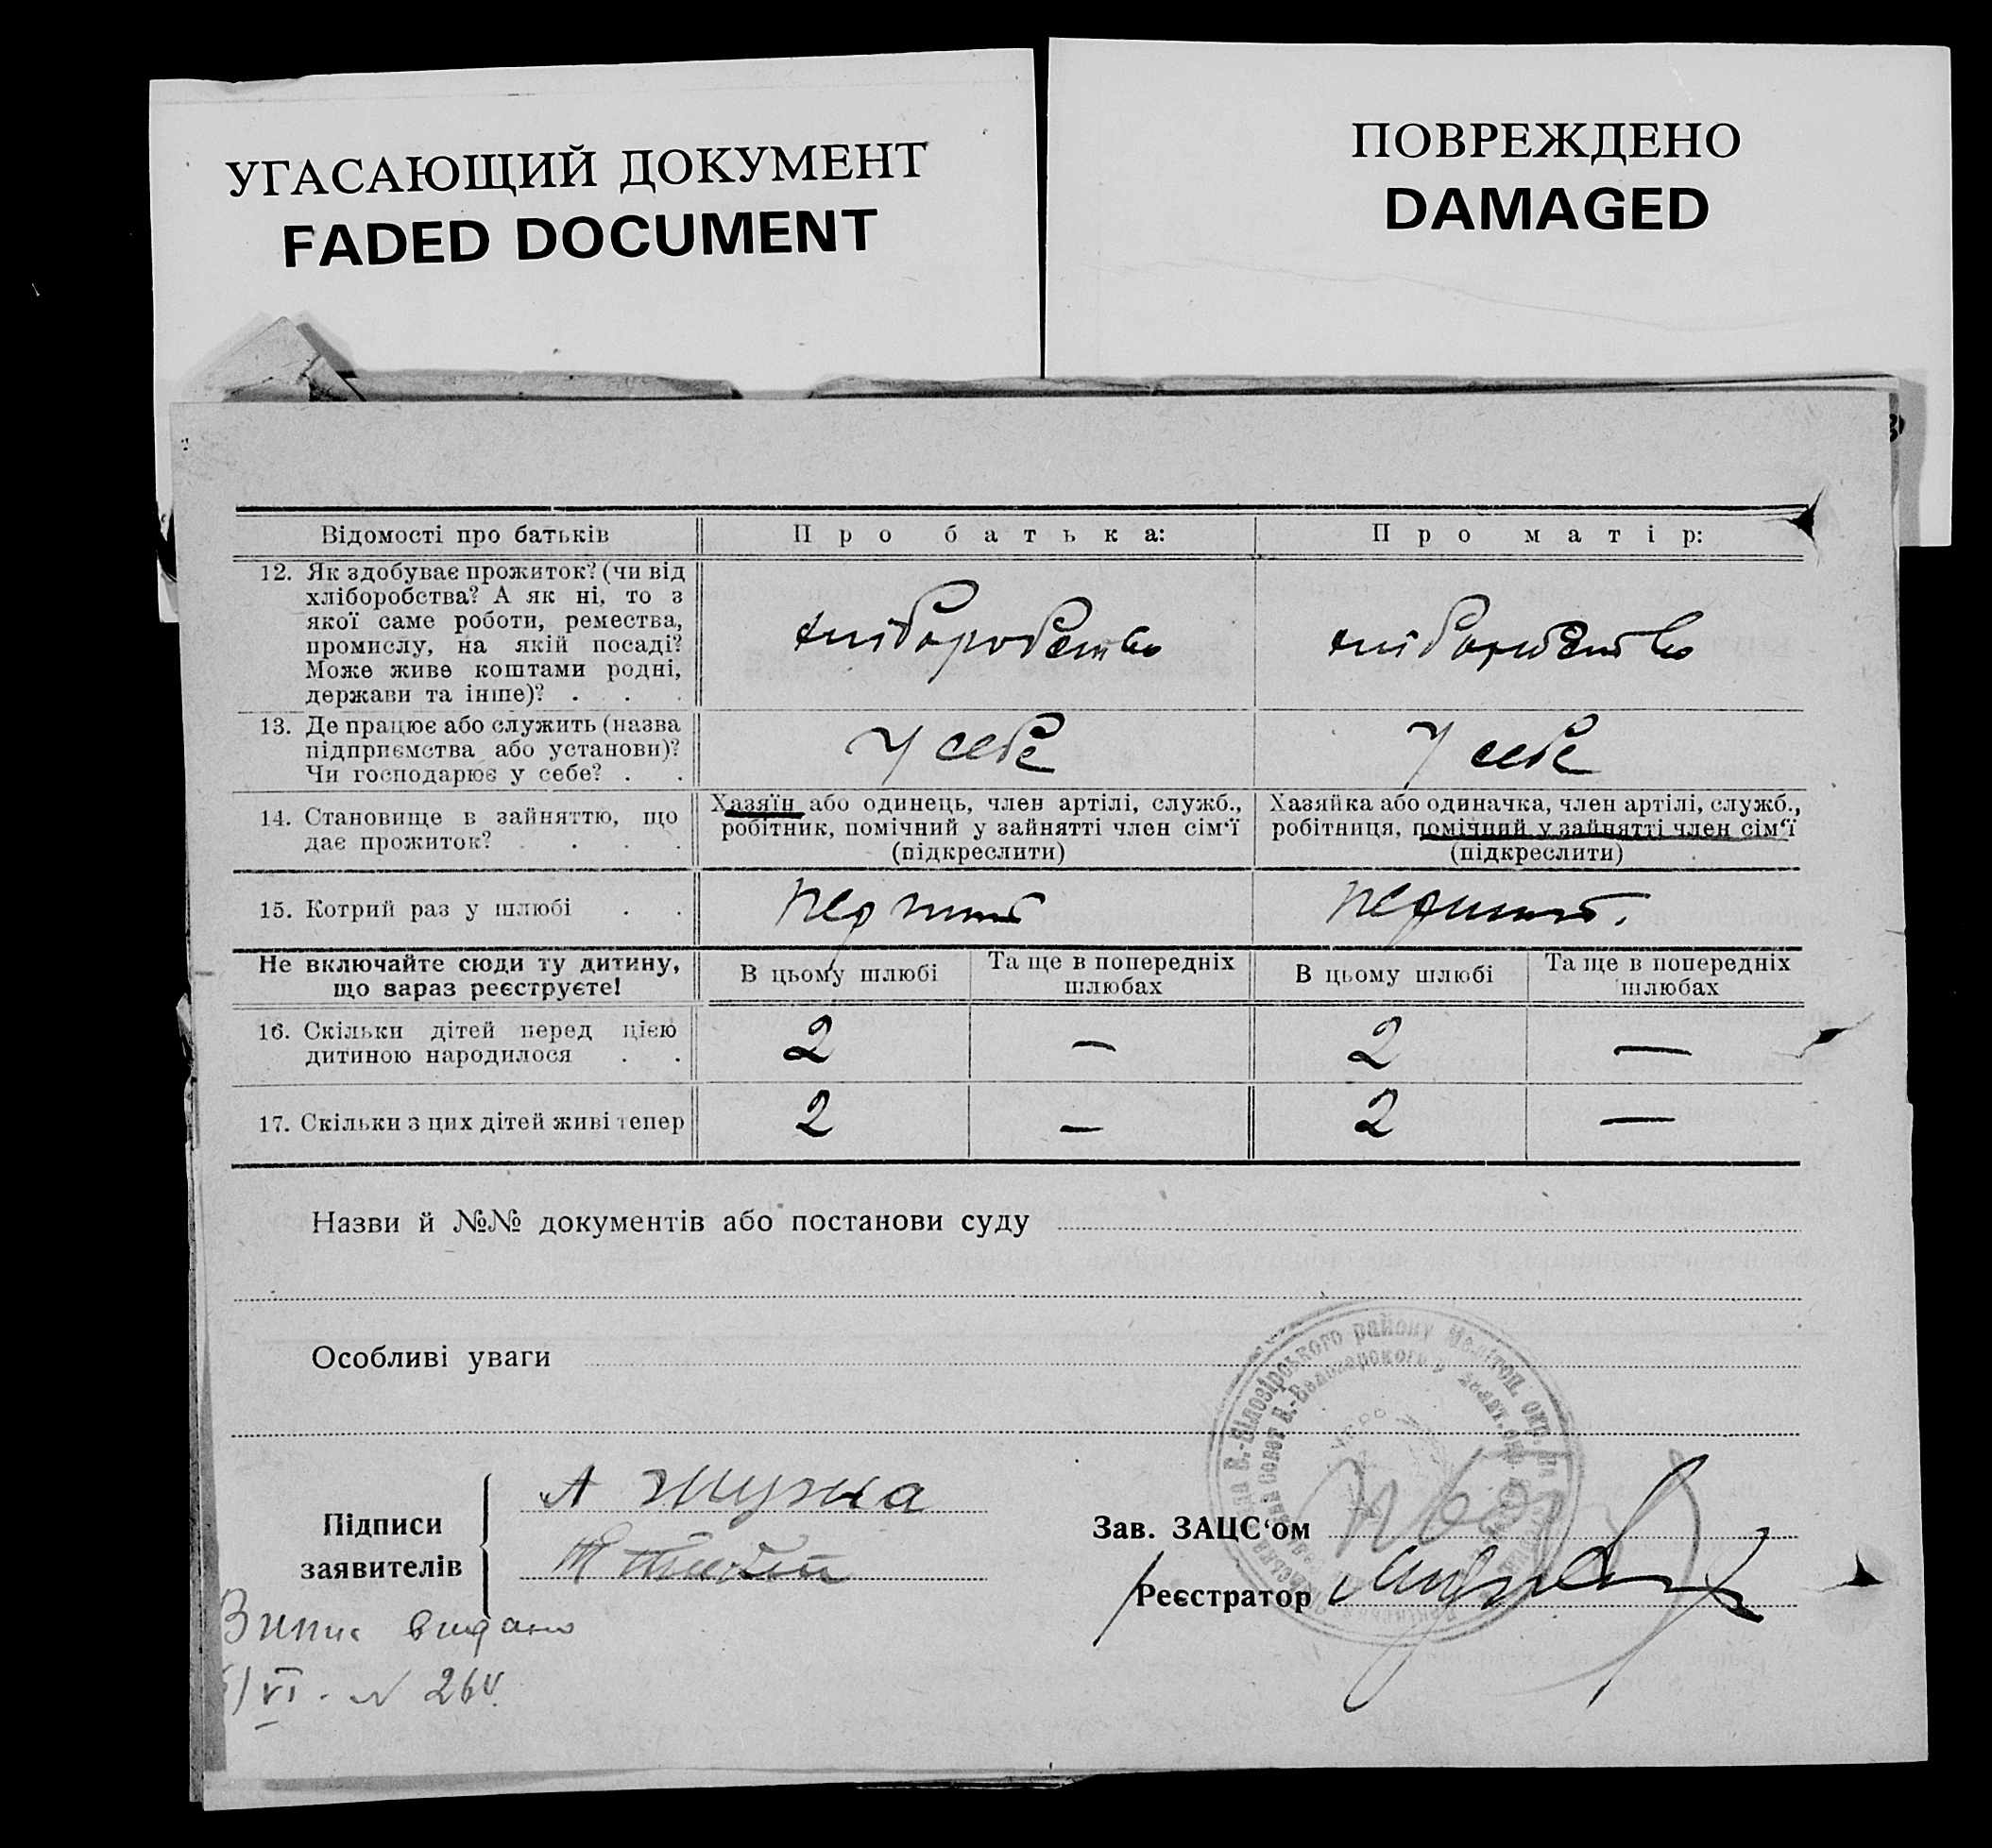 УГАСАЮЩИЙ ДОКУМЕНТ
FADED DOCUMENT
ПОВРЕЖДЕНО
DAMAGED
Відомості про батьків
Про батька:
Про матір:
12. Як здобуває прожиток? (чи від
хліборобства? А як ні, то з
якої саме роботи, ремества,
промислу, на якій посаді?
Може живе коштами родні,
держави та інше)? . . .
хліборобство
хліборобство
13. Де працює або служить (назва
підприємства або установи)?
Чи господарює у себе? . .
у себе
у себе
14. Становище в зайняттю, що
дає прожиток? . . . .
Хазяїн або одинець, член артілі, служб.,
робітник, помічний у зайнятті член сім‘ї
(підкреслити)
Хазяйка або одиначка, член артілі, служб.,
робітниця, помічний у зайнятті член сім‘ї
(підкреслити)
15. Котрий раз у шлюбі . .
перший
перший.
Не включайте сюди ту дитину,
що зараз реєструєте!
В цьому шлюбі
Та ще в попередніх
шлюбах
В цьому шлюбі
Та ще в попередніх
шлюбах
16. Скільки дітей перед цією
дитиною народилося . .
2
—
2
—
17. Скільки з цих дітей живі тепер
2
—
2
—
Назви й №№ документів або постанови суду
Особливі уваги
В.-Білозірського району Мелітоп. окр.
Підписи
заявителів
А
Зав. ЗАЦС‘ом
Реєстратор
Випис видано
VI. N 264.